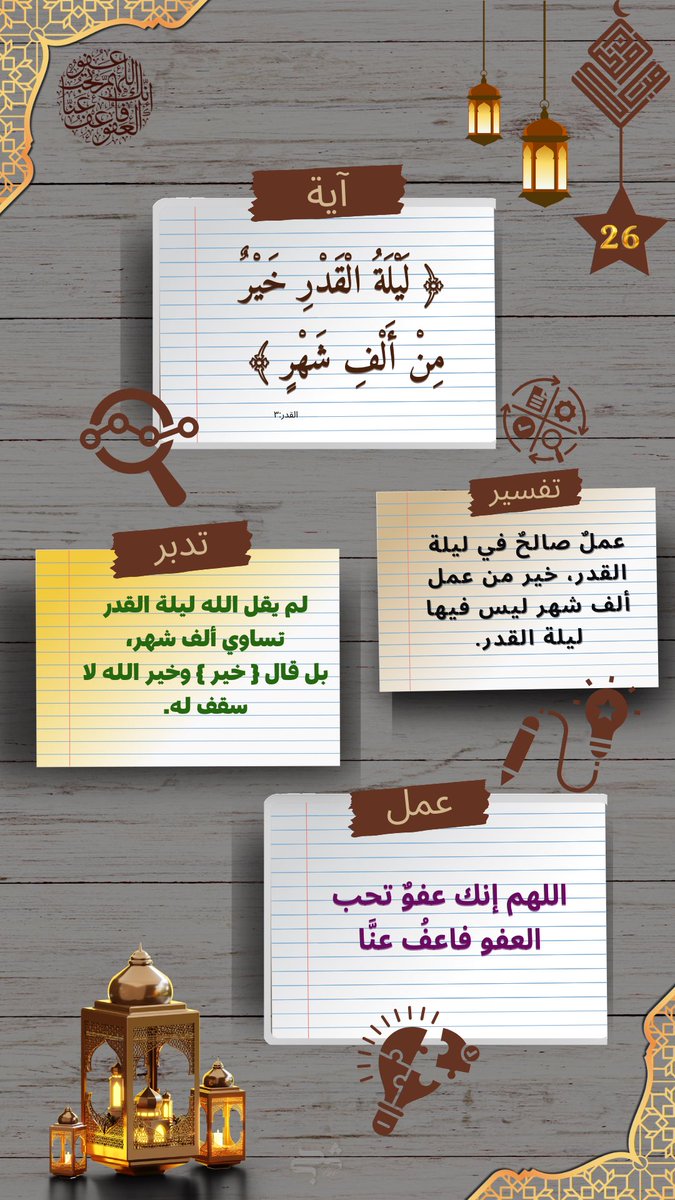 اللهم إنك عفو تحب العفو فاعف عنا
26
آية
﴿ لَيْلَةُ الْقَدْرِ خَيْرٌ
مِنْ أَلْفِ شَهْرٍ ﴾
القدر:٣
تفسير
عملٌ صالحٌ في ليلة
القدر، خير من عمل
ألف شهر ليس فيها
ليلة القدر.
تدبر
لم يقل الله ليلة القدر
تساوي ألف شهر،
بل قال { خير } وخير الله لا
سقف له.
عمل
اللهم إنك عفوٌ تحب
العفو فاعفُ عنَّا